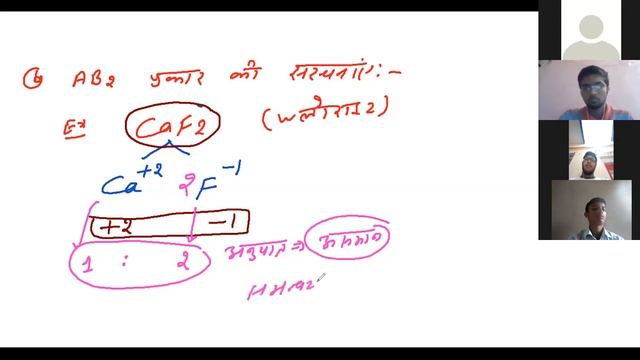 (b) AB2 प्रकार की संरचनाएं:-
Ex CaF2 (फ्लोराइट)
Ca+2 2F-1
+2 -1
1 : 2 अनुपात ⇒ असमान